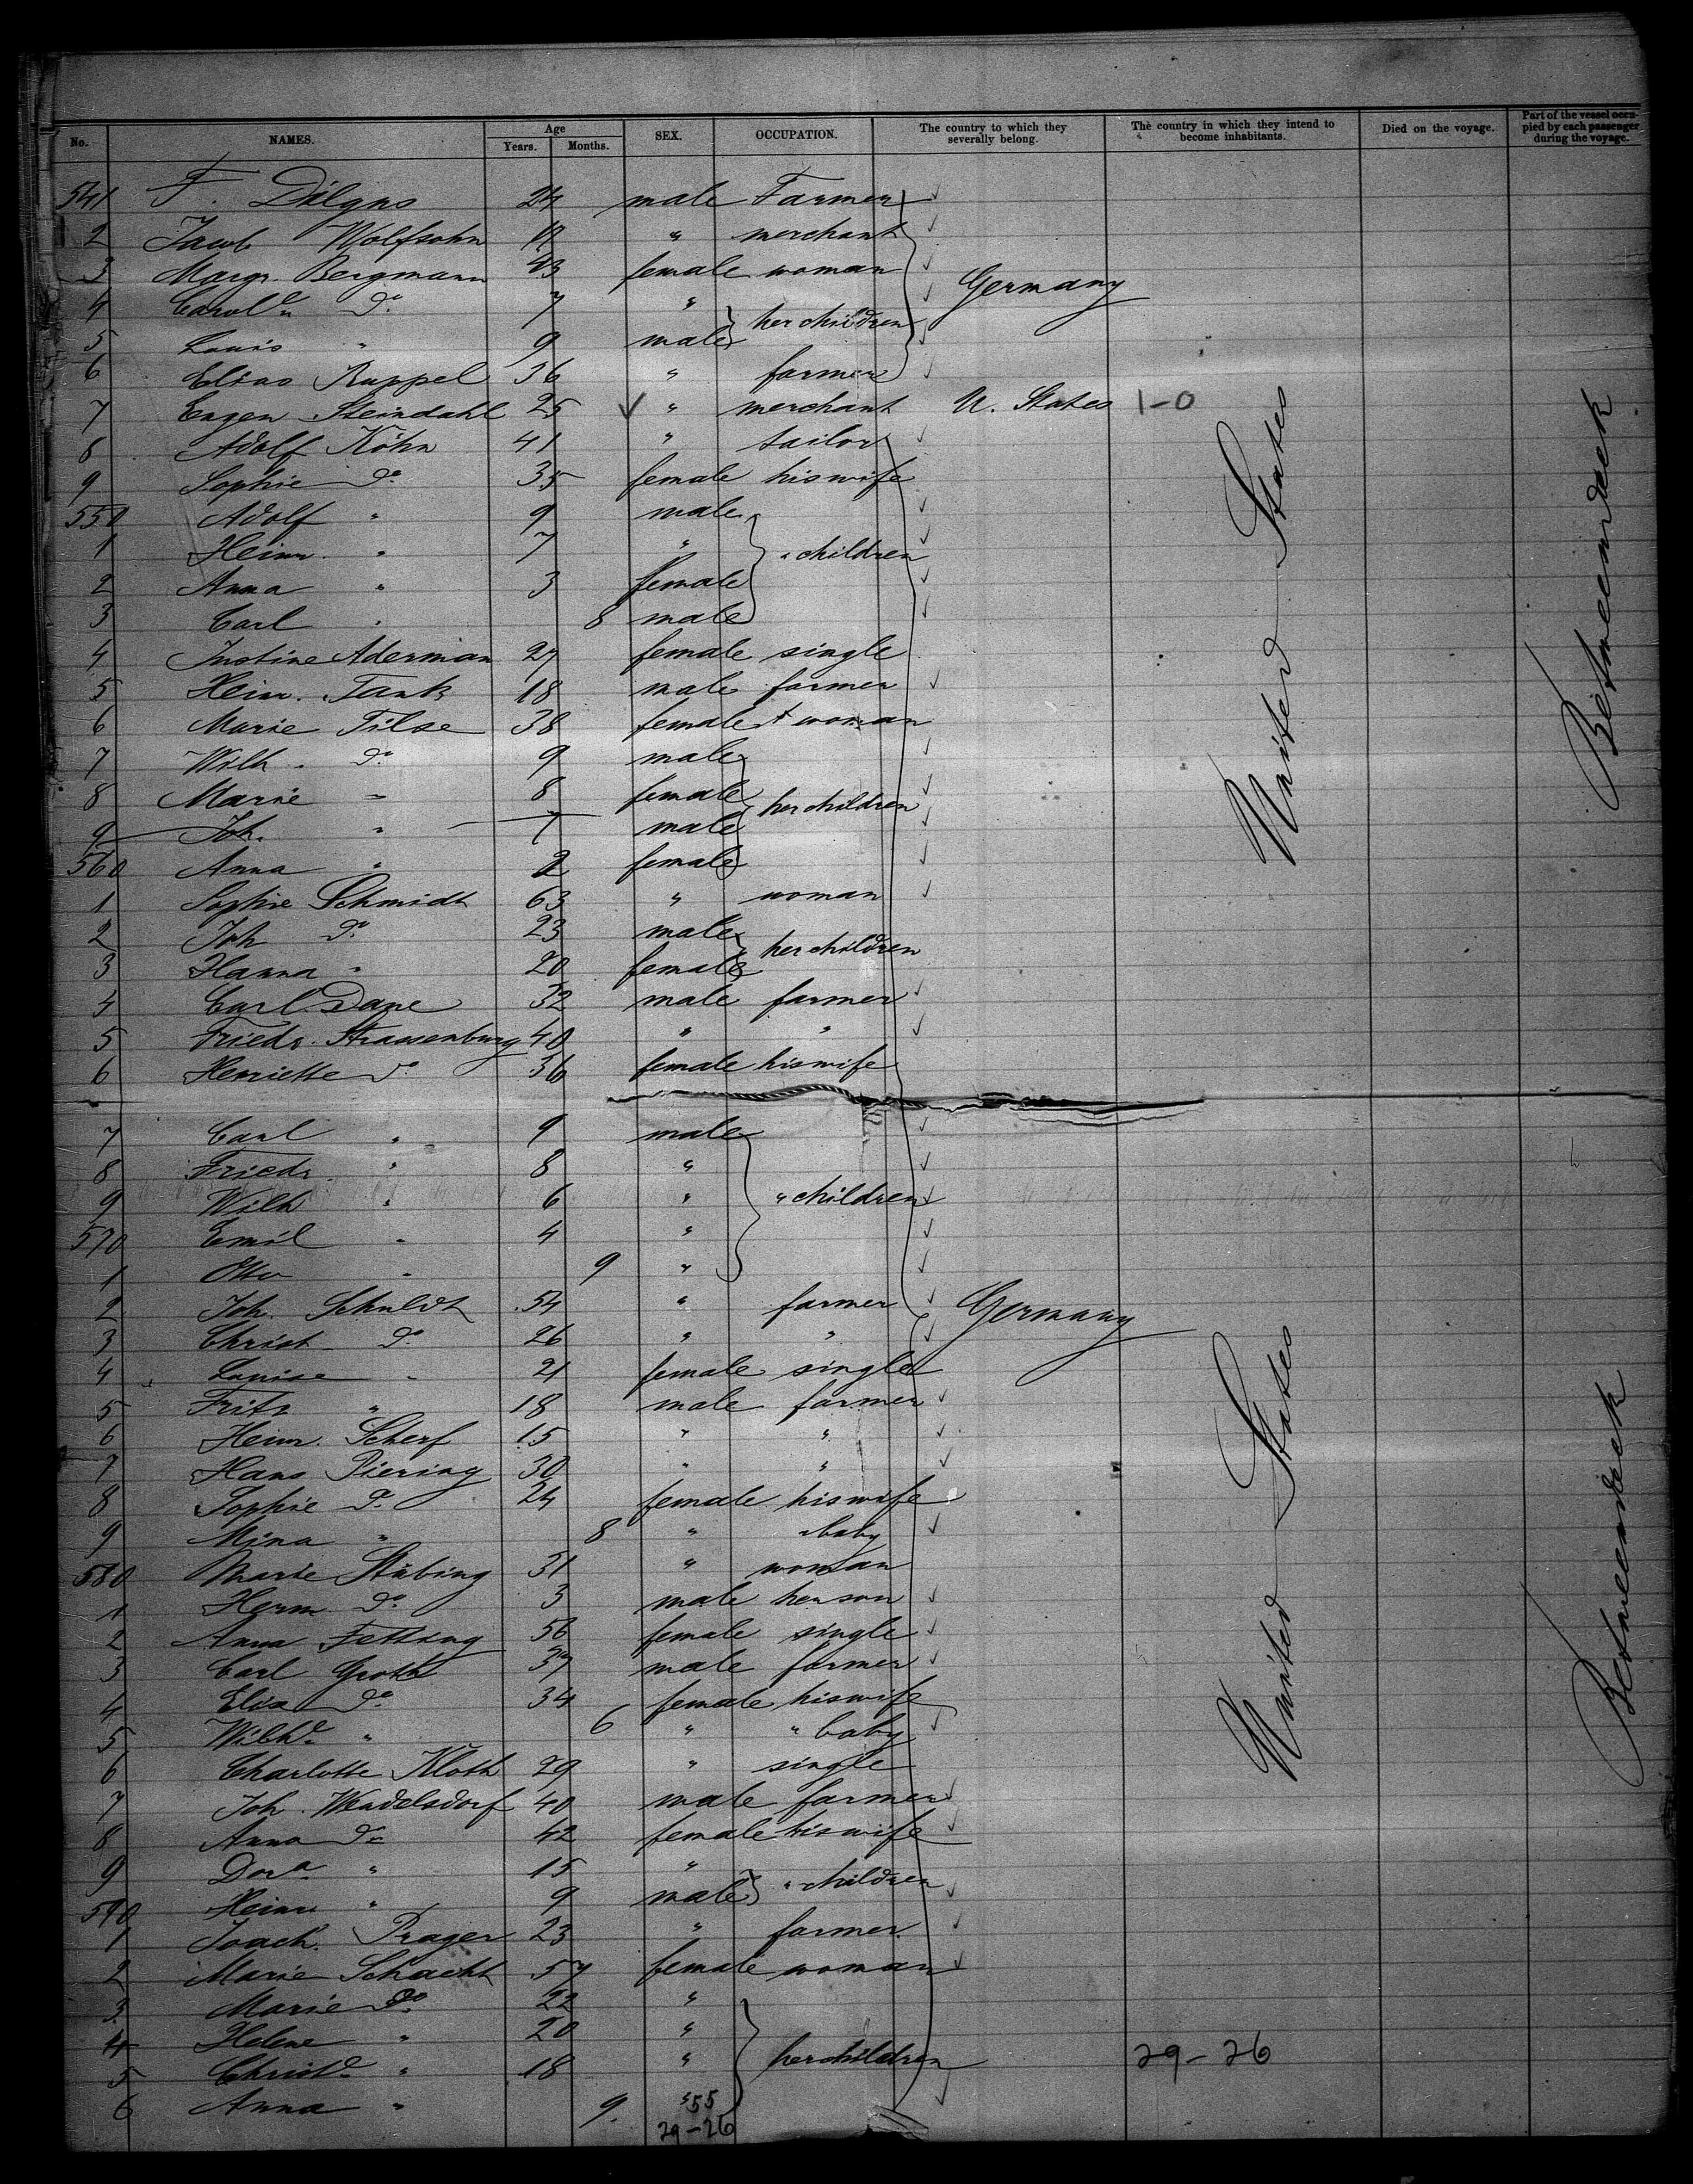 No. NAMES. Age Years. Months. SEX. OCCUPATION. The country to which they severally belong. The country in which they intend to become inhabitants. Died on the voyage. Part of the vessel occupied by each passenger during the voyage.
541 F. Dilgns 24 male Farmer
2 Jacob Wolfsohn 19 " merchant
3 Margr. Bergmann 43 female woman
4 Carol.e do 7 " her children Germany
5 Louis " 9 male
6 Elias Ruppel 36 " farmer
7 Eugen Steindahl 25 " merchant U. States 1-0
8 Adolf Köhn 41 " tailor
9 Sophie do 35 female his wife
550 Adolf " 9 male
1 Heinr. " 7 " " children
2 Anna " 3 female
3 Carl " 8 male
4 Justine Aderman 27 female single
5 Heinr. Tank 18 male farmer
6 Marie Tilse 38 female woman
7 Wilh. do 9 male
8 Marie " 8 female her children United States Betweendeck
9 Joh. " 7 male
560 Anna " 2 female
1 Sophie Schmidt 63 " woman
2 Joh do 23 male her children
3 Hanna " 20 female
4 Carl Dane 32 male farmer
5 Friedr. Strassenburg 40 " "
6 Henriette do 36 female his wife
7 Carl " 9 male
8 Friedr. " 8 "
9 Wilh " 6 " " children
570 Emil " 4 "
1 Otto " 9 "
2 Joh. Schuldt 54 " farmer Germany
3 Christ. do 26 " "
4 Louise " 21 female single
5 Fritz " 18 male farmer
6 Heinr. Scherf 15 " "
7 Hans Piering 30 " "
8 Sophie do 24 female his wife
9 Mina " 8 " " baby
580 Marie Stübing 31 " woman
1 Herm. do 3 male her son
2 Anna Fetting 56 female single
3 Carl Groth 37 male farmer
4 Elisa do 34 female his wife United States Betweendeck
5 Wilh.e " 6 " " baby
6 Charlotte Kloth 29 " single
7 Joh. Wendelsdorf 40 male farmer
8 Anna do 42 female his wife
9 Dora " 15 " " children
590 Heinr " 9 male
1 Joach. Prager 23 " farmer.
2 Marie Schacht 57 female woman
3 Marie do 22 "
4 Helene " 20 "
5 Christ.e " 18 " her children 29-26
6 Anna " 9. " 55
29-26